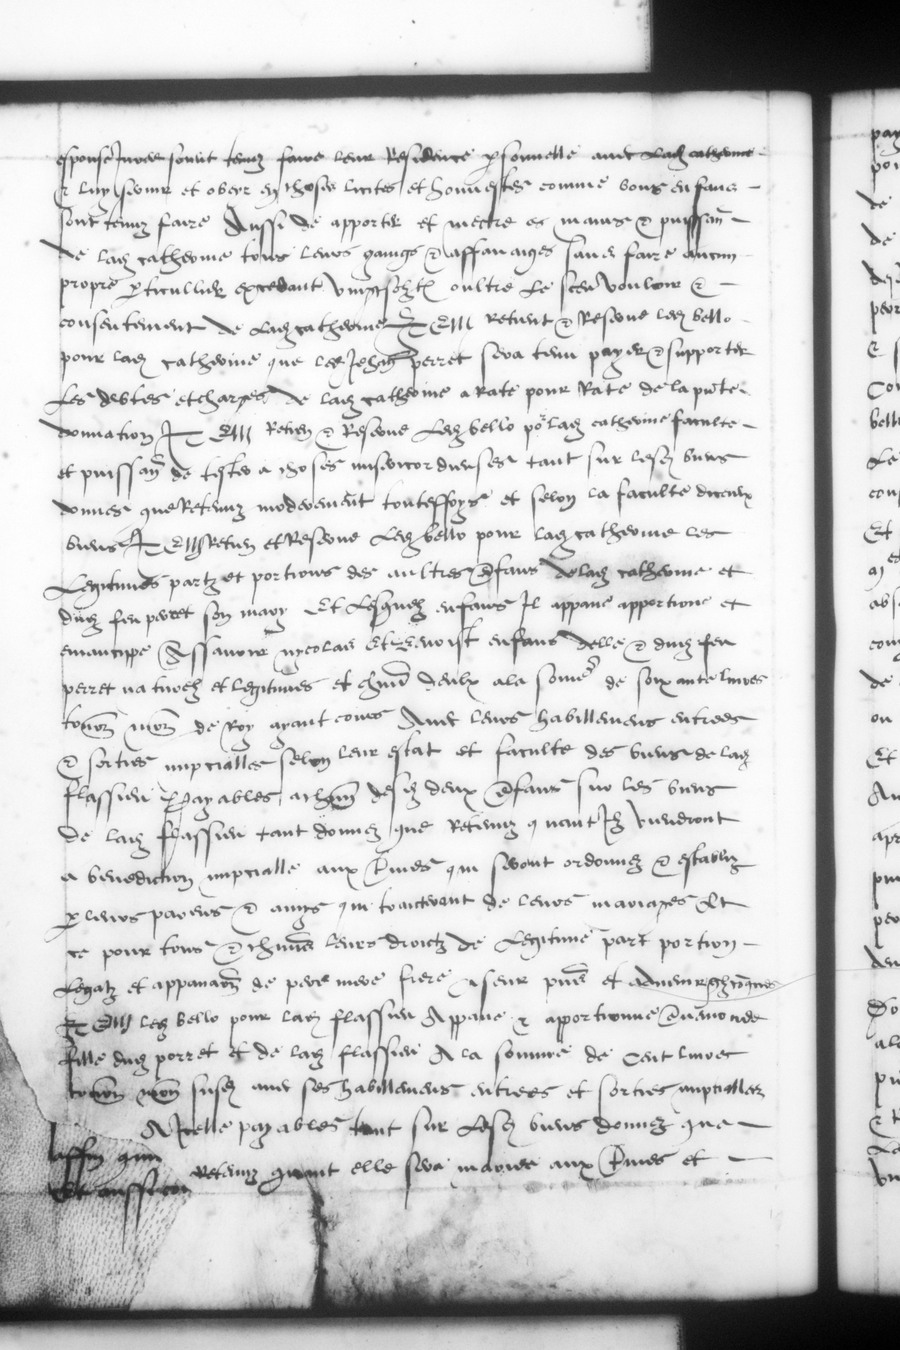 espouse Jurer seront tenuz faire leur Residence p̱sonnelle avec lad catherine
& luy servir et obeyr en choses licites et honnestes comme bons enfans
sont tenuz faire Aussi de apporter et mectre es mains & puissan̄
de lad catherine tous leurs gaings & affanaiges sans faire aucun
propre p̱ticullier excedant vingt solz tz oultre le sceu voulour &
consentement de lad catherine Itm Retient & Reserve led bello
pour lad catherine que led Jehan perret sera tenu payer & supporter
Les debtes et charges de lad catherine a Rate pour Rate de la pn̄te
donnation Itm Retient & Reserve led bello po lad catherine faculte
et puissan̄ de tester a choses misericordieuses tant sur lesd biens
donnes que Retenuz moderement touteffoys et selon la faculte diceux
biens Itm Retient et Reserve led bello pour lad catherine les
Legitimes partz et portions des aultres enfans de lad catherine et
dud feu perret son mary Et lesquelz enfans Il appane apportione et
emancippe Assavoir nycolas et benoist enfans delle & dud feu
perret naturelz et legitimes et chun̄ deulx a la some de soixante livres
tourn̄ mon̄ de Roy ayant cours Avec leurs habillemens entrees
& sorties nupcialles selon leur estat et faculte des biens de lad
flassieu payables a chun̄ desd deux enfans sur les biens
de lad flassieu tant donnez que Retenuz quant Ilz viendront
a benediction nupcialle aux termes qui seront ordonnez & establiz
p̱ leurs parens & amys qui traicteront de leurs mariages Et
ce pour tous & chūns leurs droictz de Legitime part portion
Legatz et appanaige de pere mere frere & seur pn̄s et advenir
Itm led bello pour lad flassieu Appane & apportionne
fille dud perret et de lad flassieu A la somme de Cent livres
tourn̄ mon̄ susd avec ses habillemens entrees et sorties nupcialles
A Icelle payables tant sur lesd biens donnez que
Retenuz quant elle sera mariee aux termes et
laffin que
Et aussi